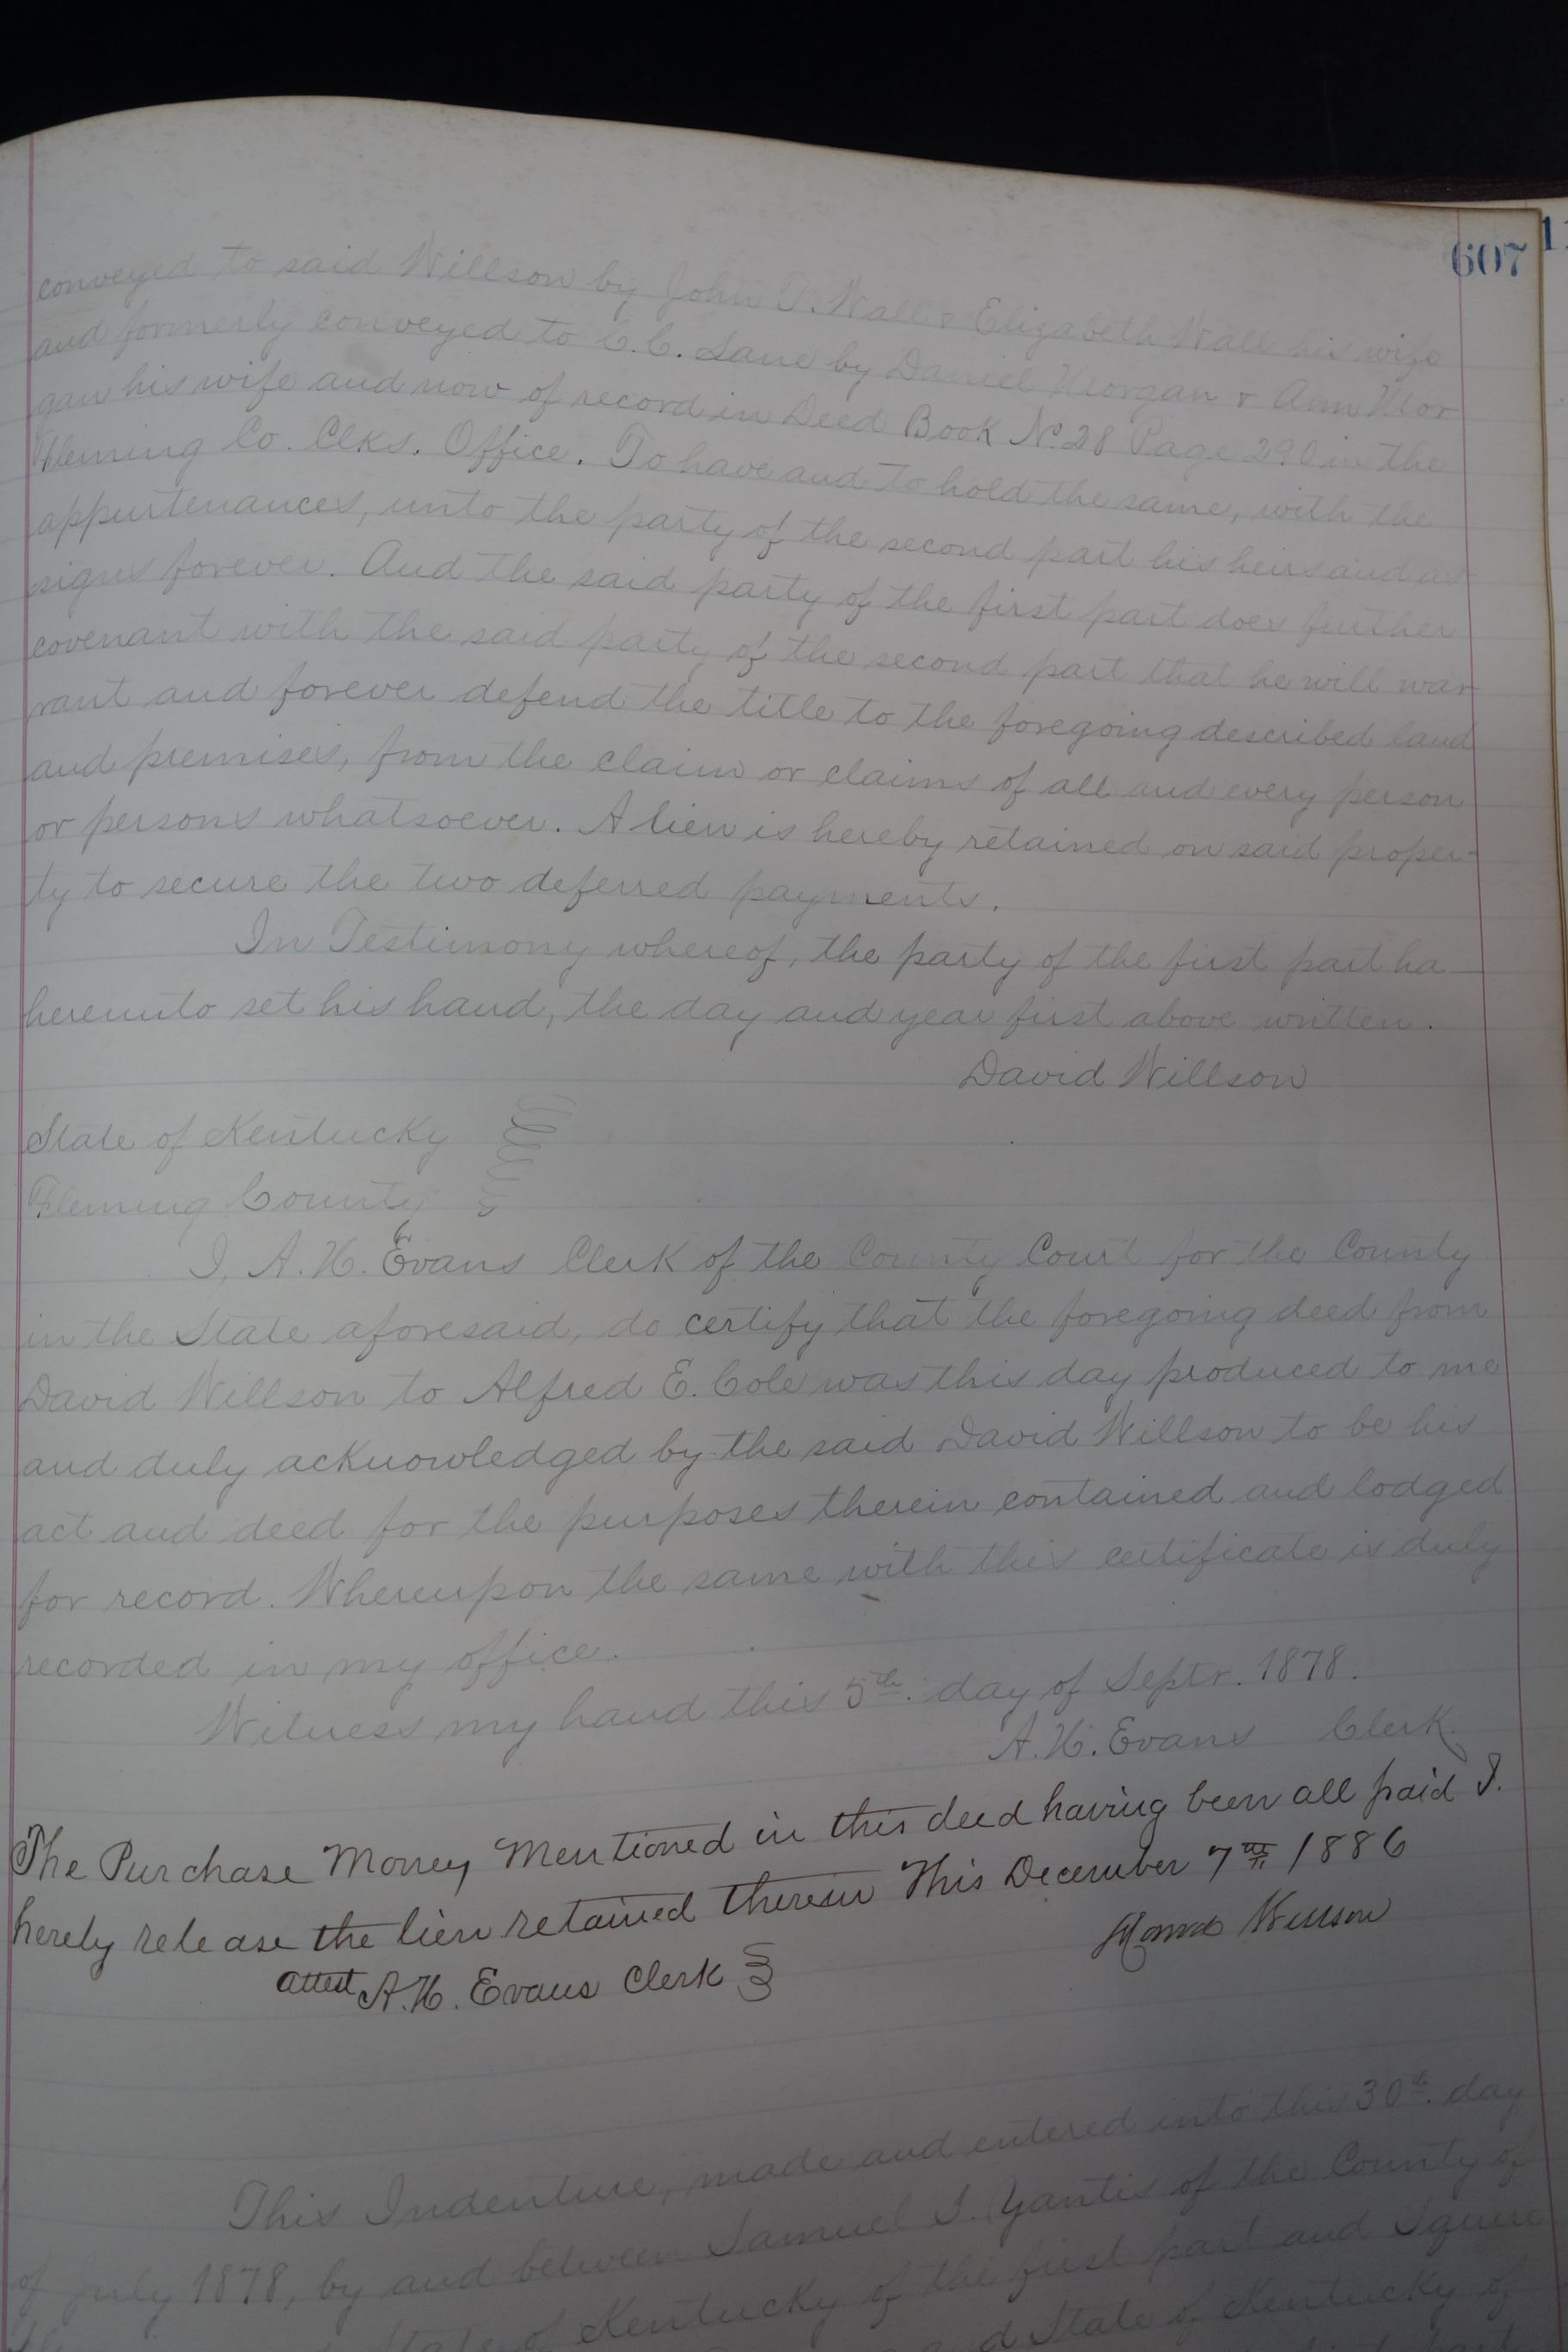 607
conveyed to said Willson by John T. Wall & Elizabeth Wall his wife
and formerly conveyed to C.C. Lane by Daniel Morgan & Ann Mor
gan his wife and now of record in Deed Book No. 28 Page 290 in the
Fleming Co. Clks. Office. To have and to hold the same, with the
appurtenances, unto the party of the second part his heirs and as
signs forever. And the said party of the first part does further
covenant with the said party of the second part that he will war
rant and forever defend the title to the foregoing described land
and premises, from the claim or claims of all and every person
or persons whatsoever. A lien is hereby retained on said proper-
ty to secure the two deferred payments.
In Testimony whereof, the party of the first part ha
hereunto set his hand, the day and year first above written.
David Willson
State of Kentucky
Fleming County
I, A.H. Evans Clerk of the County Court for the County
in the State aforesaid, do certify that the foregoing deed from
David Willson to Alfred E. Cole was this day produced to me
and duly acknowledged by the said David Willson to be his
act and deed for the purposes therein contained and lodged
for record. Whereupon the same with this certificate is duly
recorded in my office.
Witness my hand this 5th. day of Septr. 1878.
A.H. Evans Clerk.
The Purchase Money Mentioned in this deed having been all paid I.
herely release the lien retained therein This December 7th 1886
Willson
attest A.H. Evans Clerk
This Indenture, made and entered into this 30th. day
of July 1878, by and between Samuel S. Yantis of the County of
State of Kentucky of the first part and Squire
and State of Kentucky of